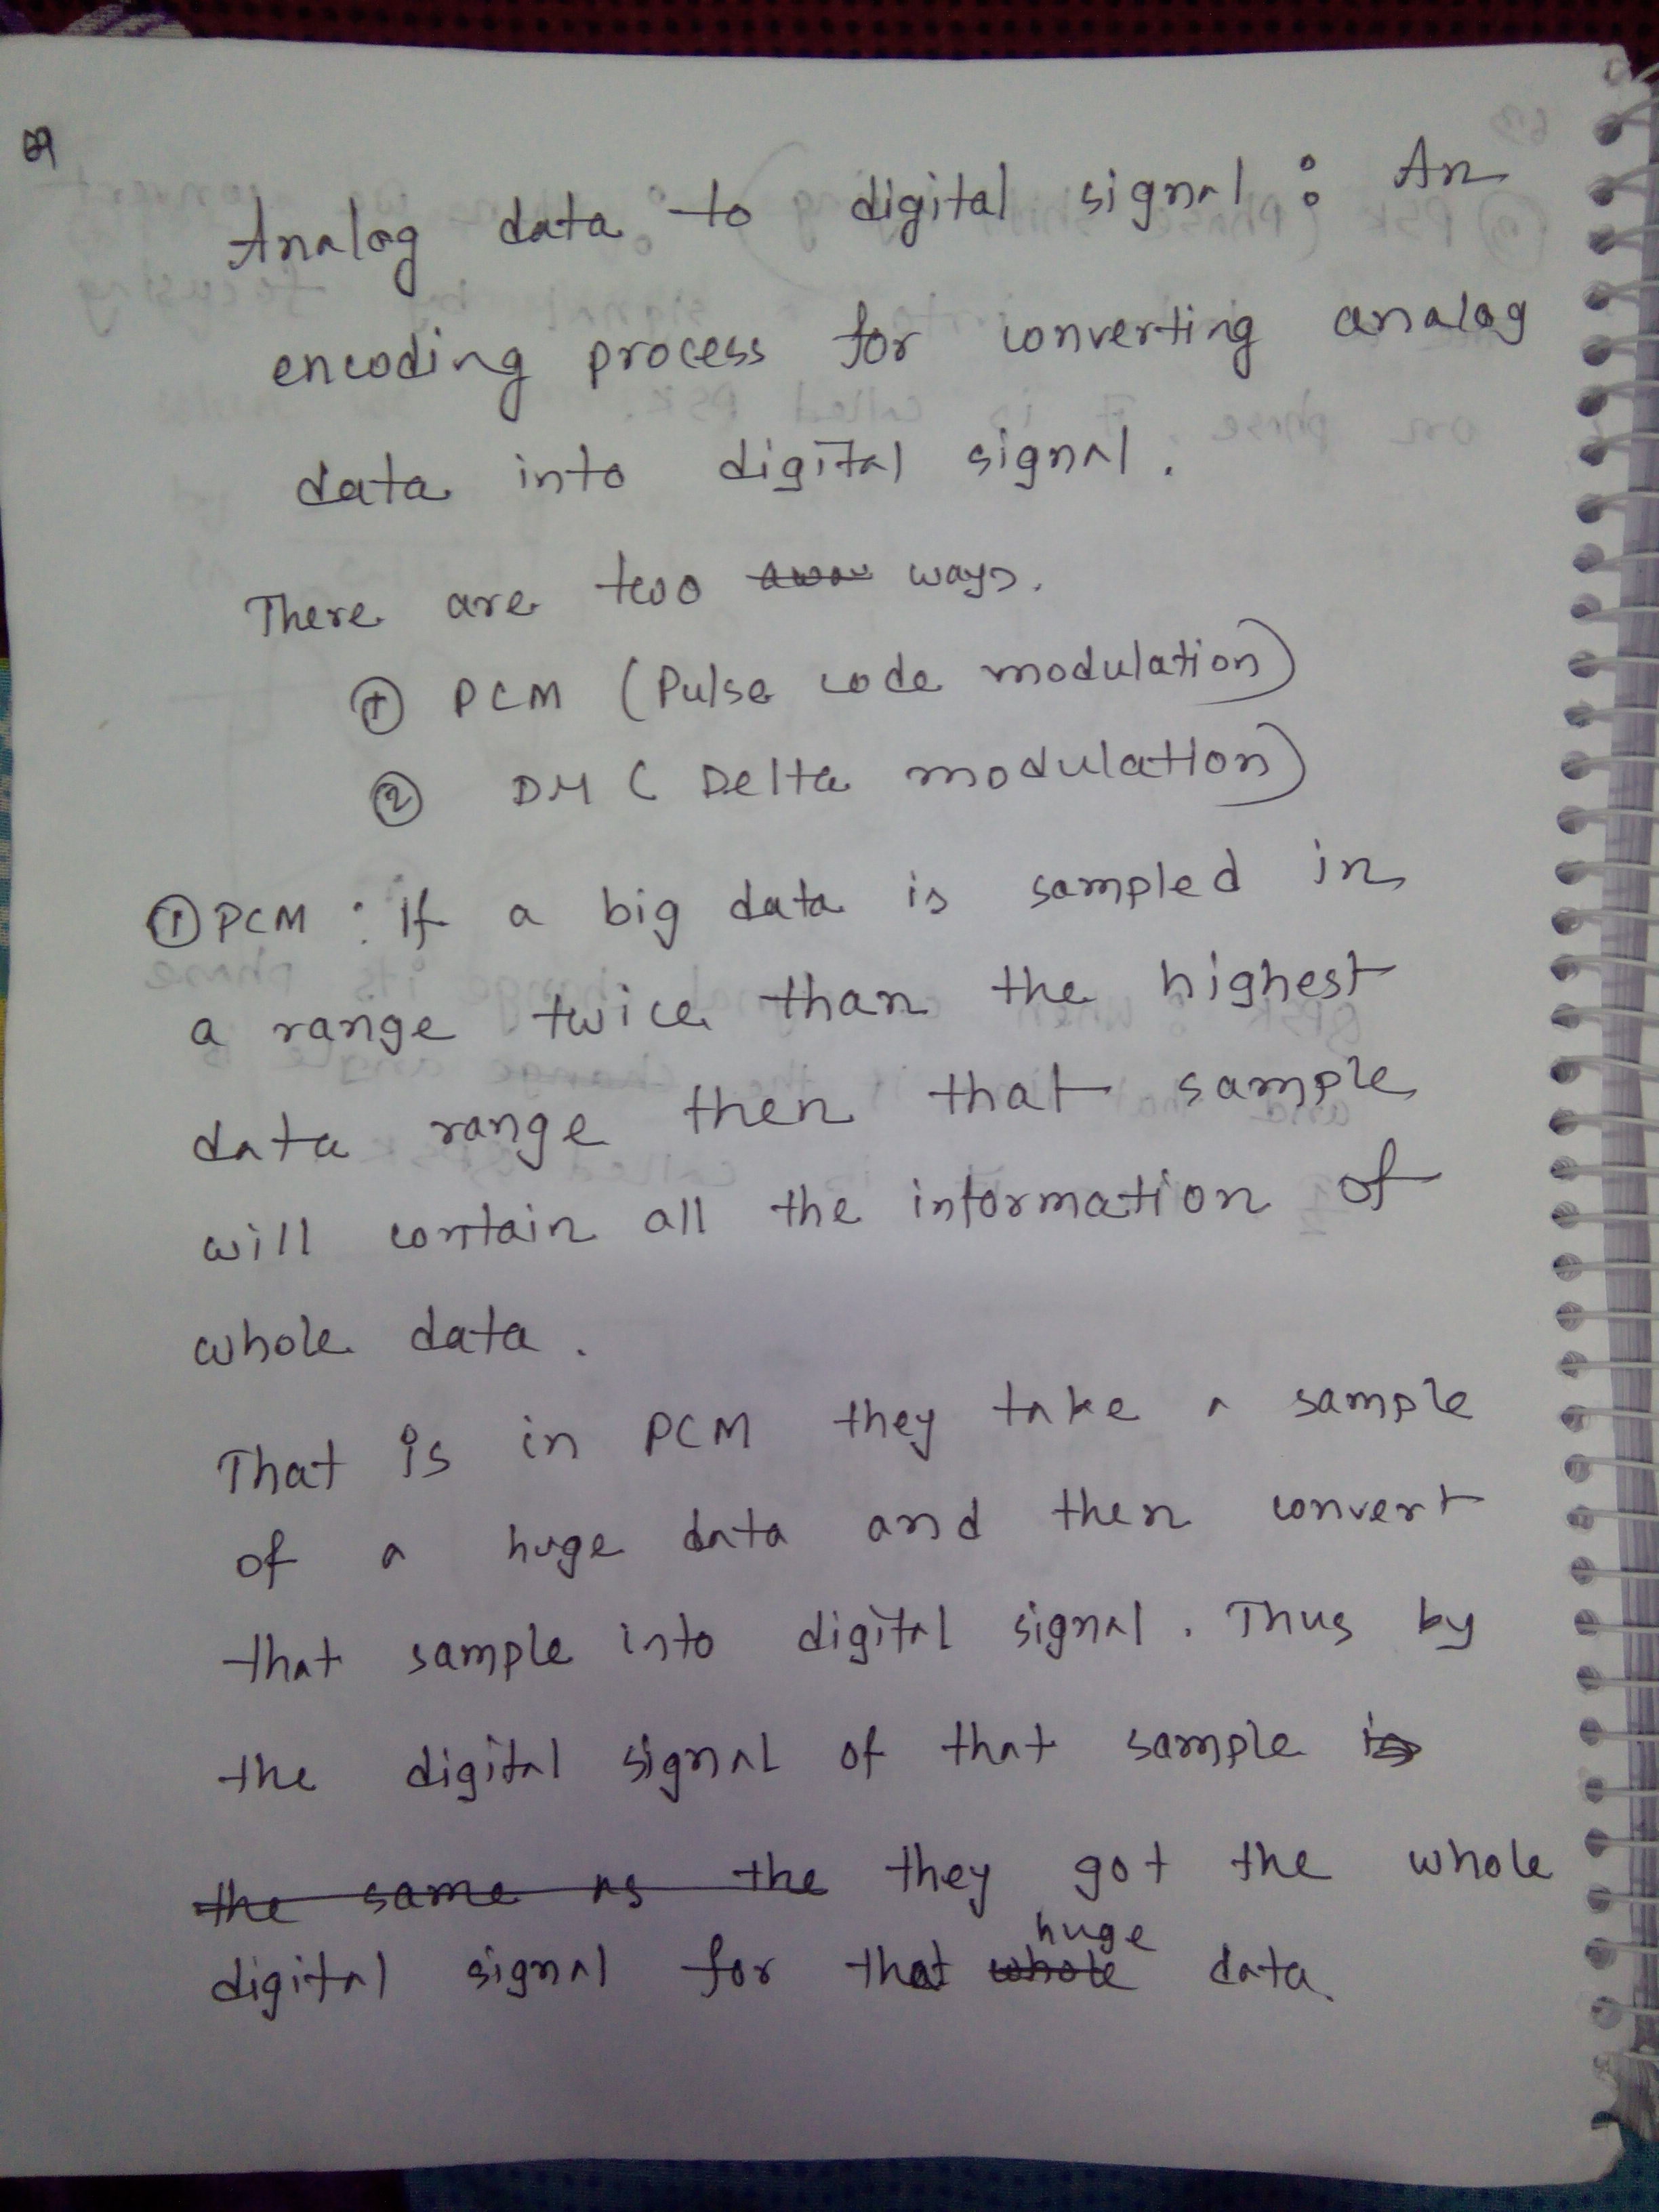 Analog data to digital signal : An
encoding process for converting analog
data into digital signal.
There are two ways.
① PCM (Pulse code modulation)
② DM (Delta modulation)
① PCM : If a big data is sampled in
a range twice than the highest
data range then that sample
will contain all the information of
whole data.
That is in PCM they take a sample
of a huge data and then convert
that sample into digital signal. Thus by
the digital signal of that sample is
the same as the they got the whole
huge
digital signal for that whole data.